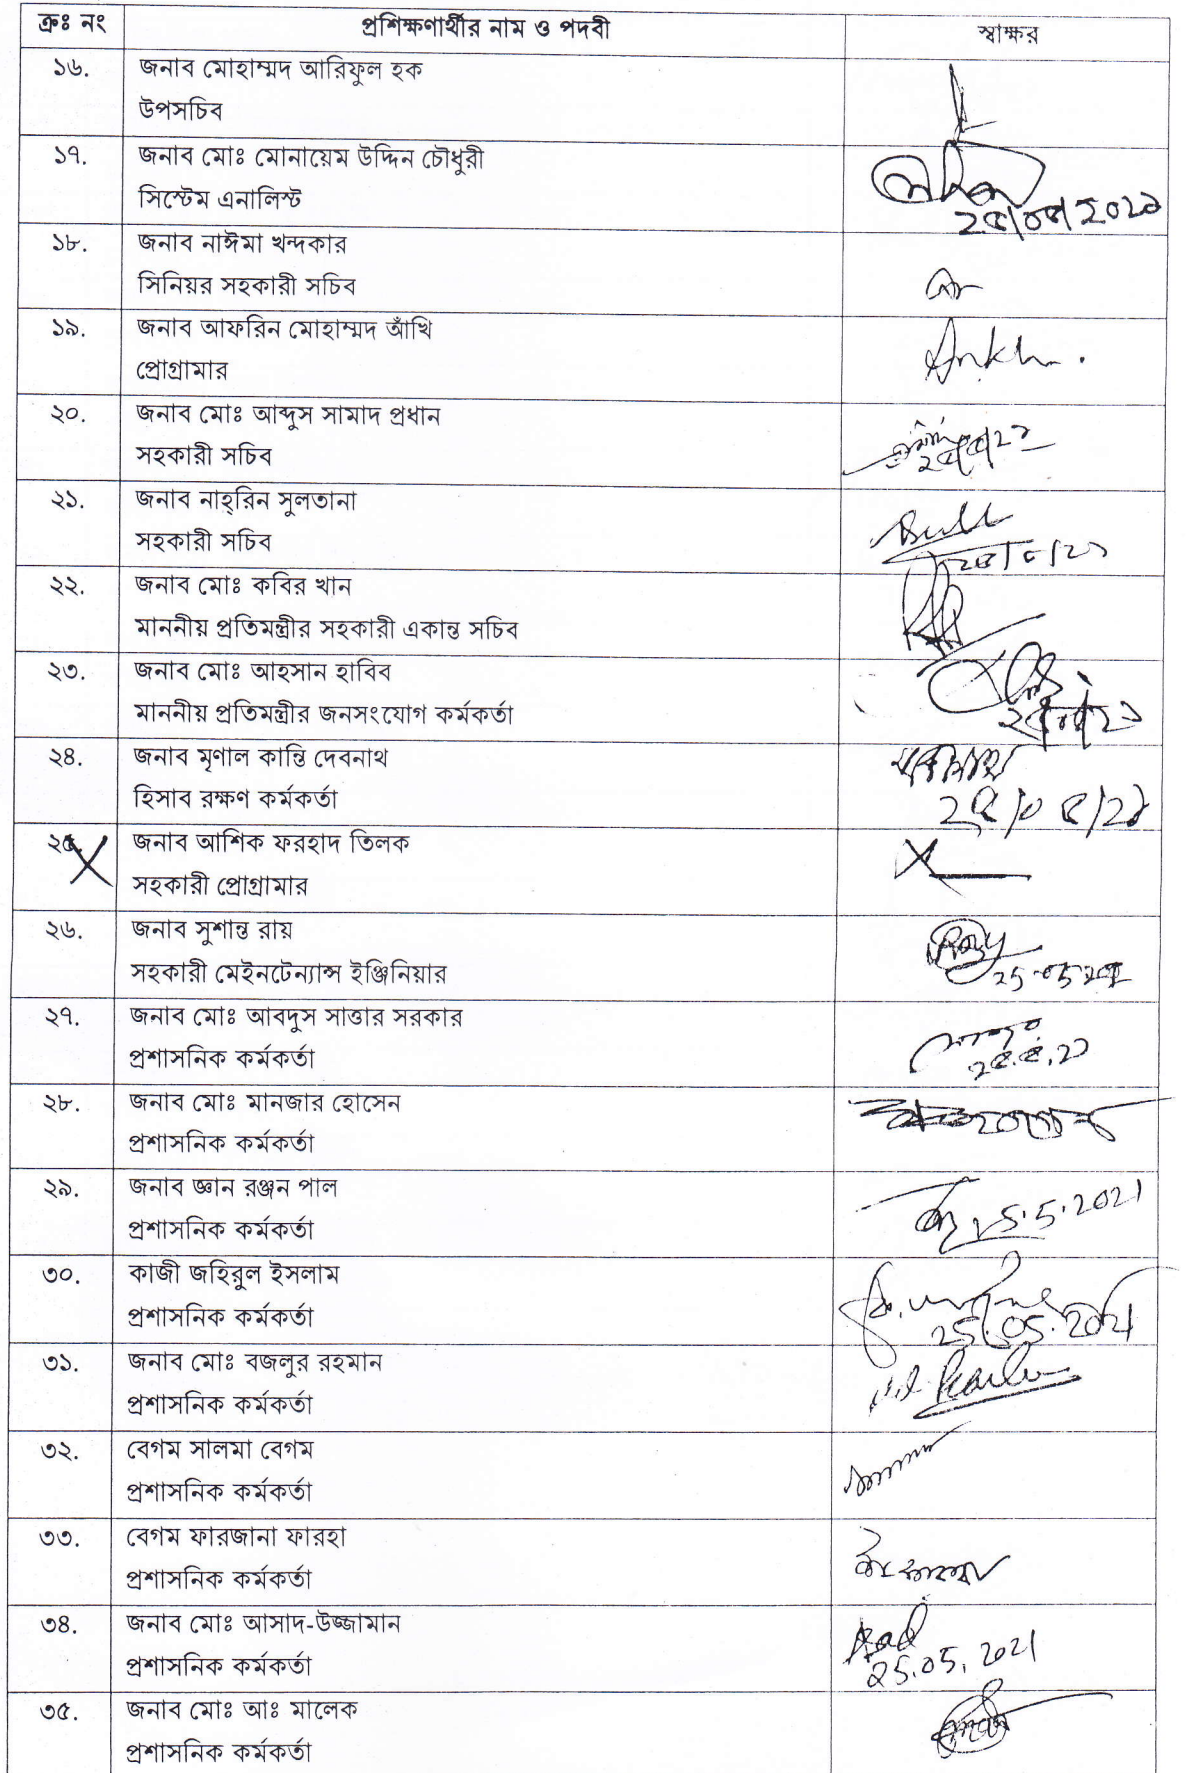 ক্রঃ নং	প্রশিক্ষণার্থীর নাম ও পদবী	স্বাক্ষর
১৬.	জনাব মোহাম্মদ আরিফুল হক
উপসচিব
১৭.	জনাব মোঃ মোনায়েম উদ্দিন চৌধুরী
সিস্টেম এনালিস্ট
১৮.	জনাব নাঈমা খন্দকার
সিনিয়র সহকারী সচিব
১৯.	জনাব আফরিন মোহাম্মদ আঁখি
প্রোগ্রামার
২০.	জনাব মোঃ আব্দুস সামাদ প্রধান
সহকারী সচিব
২১.	জনাব নাহ্‌রিন সুলতানা
সহকারী সচিব
২২.	জনাব মোঃ কবির খান
মাননীয় প্রতিমন্ত্রীর সহকারী একান্ত সচিব
২৩.	জনাব মোঃ আহসান হাবিব
মাননীয় প্রতিমন্ত্রীর জনসংযোগ কর্মকর্তা
২৪.	জনাব মৃণাল কান্তি দেবনাথ
হিসাব রক্ষণ কর্মকর্তা	২৫/০৫/২১
২৫.	জনাব আশিক ফরহাদ তিলক
সহকারী প্রোগ্রামার
২৬.	জনাব সুশান্ত রায়	Roy
সহকারী মেইনটেন্যান্স ইঞ্জিনিয়ার
২৭.	জনাব মোঃ আবদুস সাত্তার সরকার
প্রশাসনিক কর্মকর্তা	২৫.৫.২১
২৮.	জনাব মোঃ মানজার হোসেন
প্রশাসনিক কর্মকর্তা
২৯.	জনাব জ্ঞান রঞ্জন পাল
প্রশাসনিক কর্মকর্তা
৩০.	কাজী জহিরুল ইসলাম
প্রশাসনিক কর্মকর্তা	25.05.2021
৩১.	জনাব মোঃ বজলুর রহমান
প্রশাসনিক কর্মকর্তা
৩২.	বেগম সালমা বেগম
প্রশাসনিক কর্মকর্তা
৩৩.	বেগম ফারজানা ফারহা
প্রশাসনিক কর্মকর্তা
৩৪.	জনাব মোঃ আসাদ-উজ্জামান
প্রশাসনিক কর্মকর্তা	25.05.2021
৩৫.	জনাব মোঃ আঃ মালেক
প্রশাসনিক কর্মকর্তা